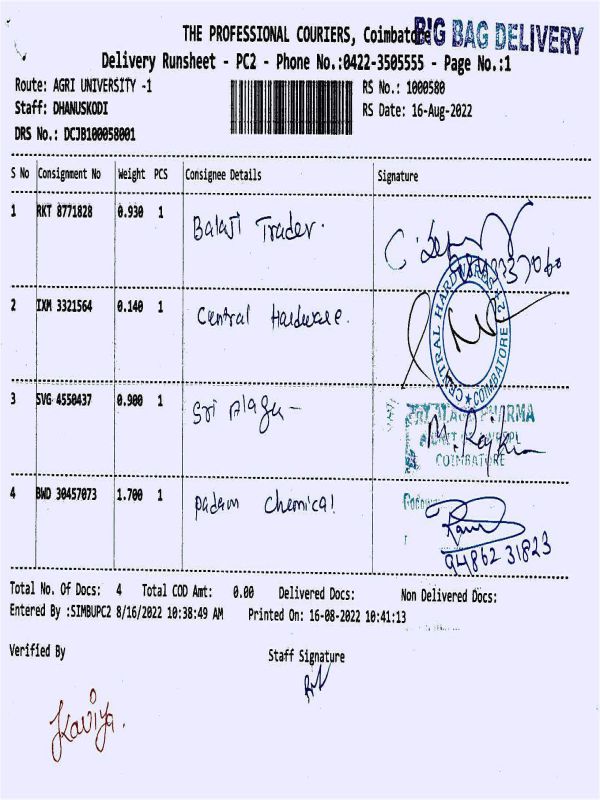 THE PROFESSIONAL COURIERS, Coimbatore
BIG BAG DELIVERY
Delivery Runsheet - PC2 - Phone No.:0422-3505555 - Page No.:1
Route: AGRI UNIVERSITY -1
RS No.: 1000580
Staff: DHANUSKODI
RS Date: 16-Aug-2022
DRS No.: DCJB100058001
S No Consignment No Weight PCS Consignee Details Signature
1 RKT 8771828 0.930 1 Balaji Trader.
2 IXM 3321564 0.140 1 Central Hardware.
CENTRAL HARDWARES COIMBATORE
3 SVG 4550437 0.900 1 Sri
PHARMA
COIMBATORE
4 BWD 30457073 1.700 1 Padam Chemical
94862 31823
Total No. Of Docs: 4 Total COD Amt: 0.00 Delivered Docs: Non Delivered Docs:
Entered By :SIMBUPC2 8/16/2022 10:38:49 AM Printed On: 16-08-2022 10:41:13
Verified By
Staff Signature
Kaviya.